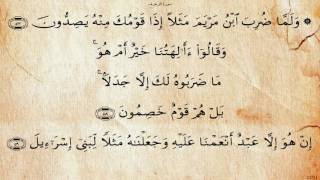 ۞ وَلَمَّا ضُرِبَ ٱبْنُ مَرْيَمَ مَثَلًا إِذَا قَوْمُكَ مِنْهُ يَصِدُّونَ ۝٥٧
وَقَالُوٓا۟ ءَأَٰلِهَتُنَا خَيْرٌ أَمْ هُوَ ۚ
مَا ضَرَبُوهُ لَكَ إِلَّا جَدَلًۢا ۚ
بَلْ هُمْ قَوْمٌ خَصِمُونَ ۝٥٨
إِنْ هُوَ إِلَّا عَبْدٌ أَنْعَمْنَا عَلَيْهِ وَجَعَلْنَٰهُ مَثَلًا لِّبَنِىٓ إِسْرَٰٓءِيلَ ۝٥٩